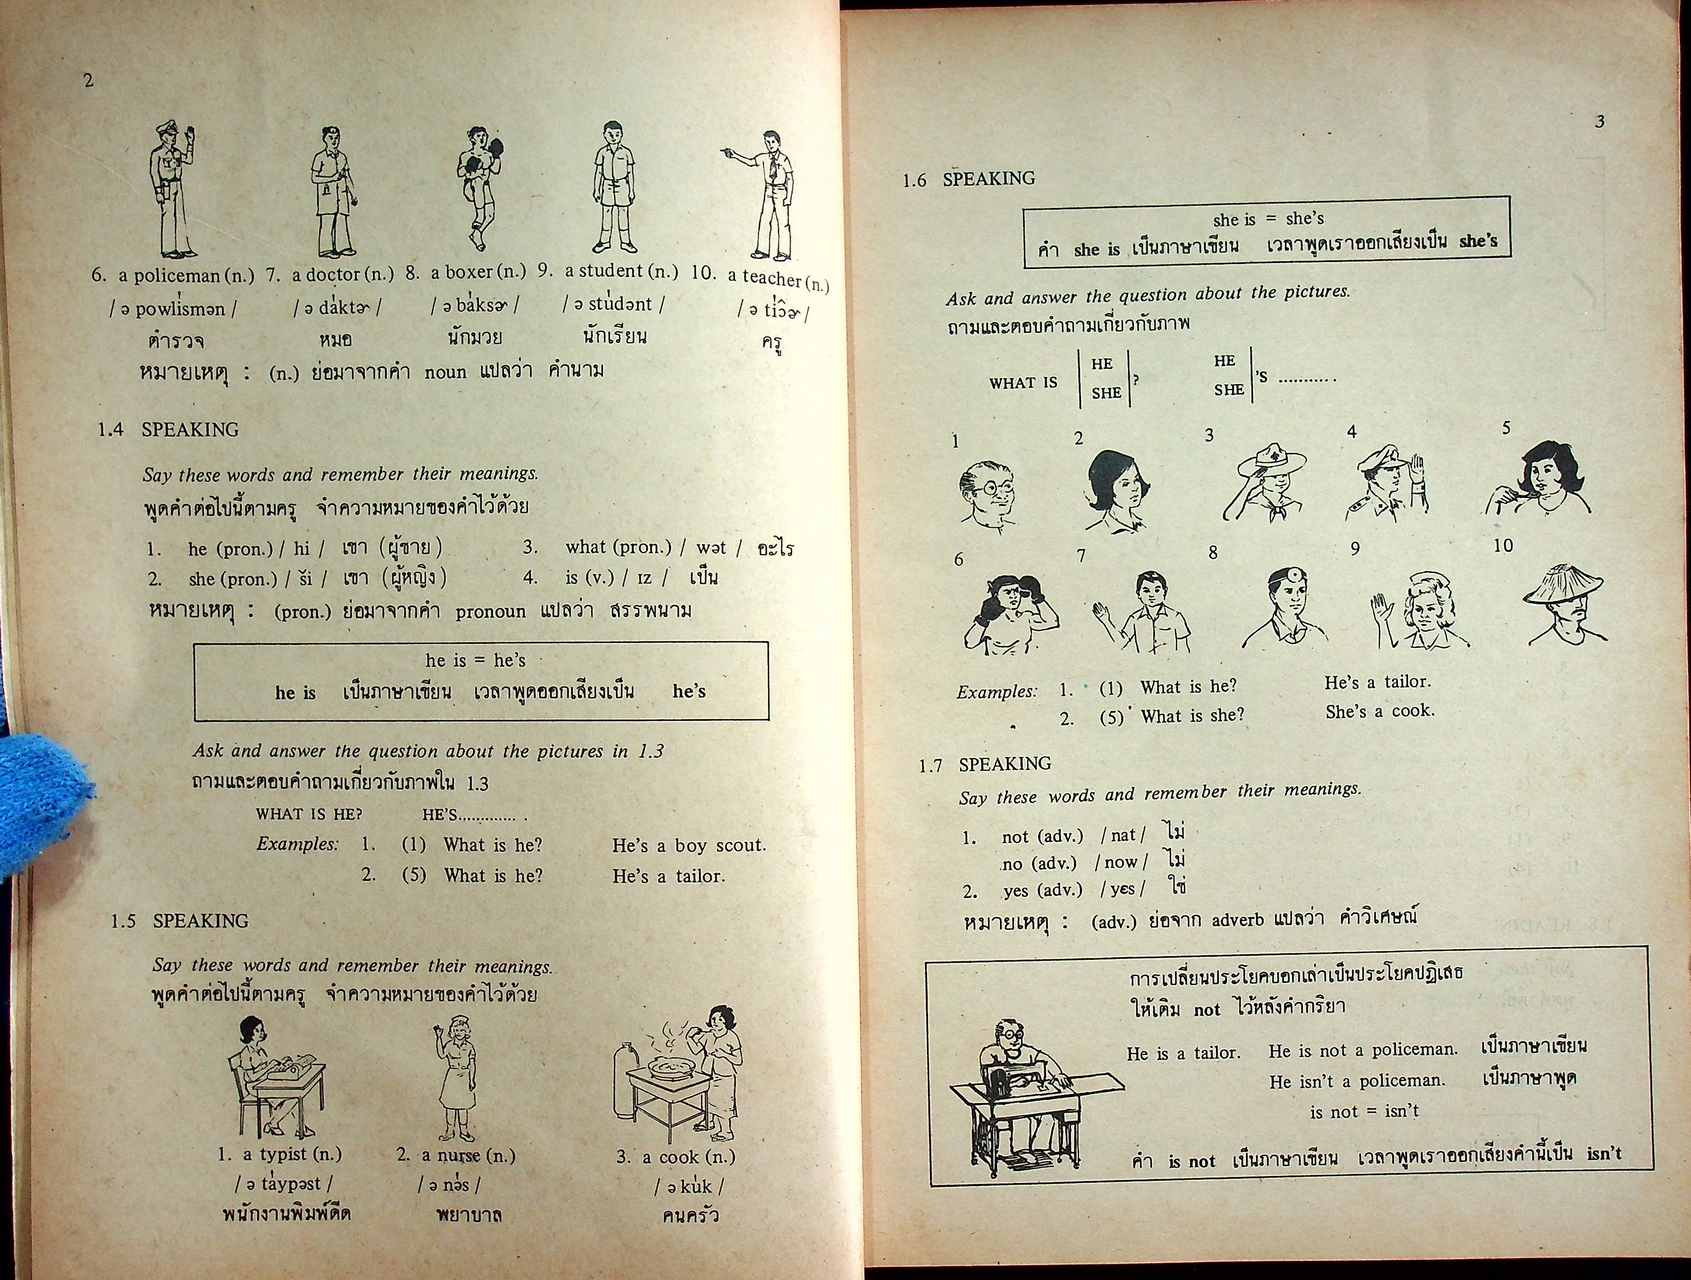 2
6. a policeman (n.) 7. a doctor (n.) 8. a boxer (n.) 9. a student (n.) 10. a teacher (n.)
/ ə powlísmən / / ə dáktɚ / / ə báksɚ / / ə stúdənt / / ə tíĉɚ /
ตำรวจ หมอ นักมวย นักเรียน ครู
หมายเหตุ : (n.) ย่อมาจากคำ noun แปลว่า คำนาม
1.4 SPEAKING
Say these words and remember their meanings.
พูดคำต่อไปนี้ตามครู จำความหมายของคำไว้ด้วย
1. he (pron.) / hi / เขา (ผู้ชาย) 3. what (pron.) / wət / อะไร
2. she (pron.) / ši / เขา (ผู้หญิง) 4. is (v.) / ɪz / เป็น
หมายเหตุ : (pron.) ย่อมาจากคำ pronoun แปลว่า สรรพนาม
he is = he's
he is เป็นภาษาเขียน เวลาพูดออกเสียงเป็น he's
Ask and answer the question about the pictures in 1.3
ถามและตอบคำถามเกี่ยวกับภาพใน 1.3
WHAT IS HE? HE'S..............
Examples: 1. (1) What is he? He's a boy scout.
2. (5) What is he? He's a tailor.
1.5 SPEAKING
Say these words and remember their meanings.
พูดคำต่อไปนี้ตามครู จำความหมายของคำไว้ด้วย
1. a typist (n.) 2. a nurse (n.) 3. a cook (n.)
/ ə táypəst / / ə nə́s / / ə kúk /
พนักงานพิมพ์ดีด พยาบาล คนครัว
3
1.6 SPEAKING
she is = she's
คำ she is เป็นภาษาเขียน เวลาพูดเราออกเสียงเป็น she's
Ask and answer the question about the pictures.
ถามและตอบคำถามเกี่ยวกับภาพ
WHAT IS HE SHE ? HE SHE 'S ...........
1 2 3 4 5
6 7 8 9 10
Examples: 1. (1) What is he? He's a tailor.
2. (5) What is she? She's a cook.
1.7 SPEAKING
Say these words and remember their meanings.
1. not (adv.) / nat / ไม่
no (adv.) / now / ไม่
2. yes (adv.) / yɛs / ใช่
หมายเหตุ : (adv.) ย่อจาก adverb แปลว่า คำวิเศษณ์
การเปลี่ยนประโยคบอกเล่าเป็นประโยคปฏิเสธ
ให้เติม not ไว้หลังคำกริยา
He is a tailor. He is not a policeman. เป็นภาษาเขียน
He isn't a policeman. เป็นภาษาพูด
is not = isn't
คำ is not เป็นภาษาเขียน เวลาพูดเราออกเสียงคำนี้เป็น isn't